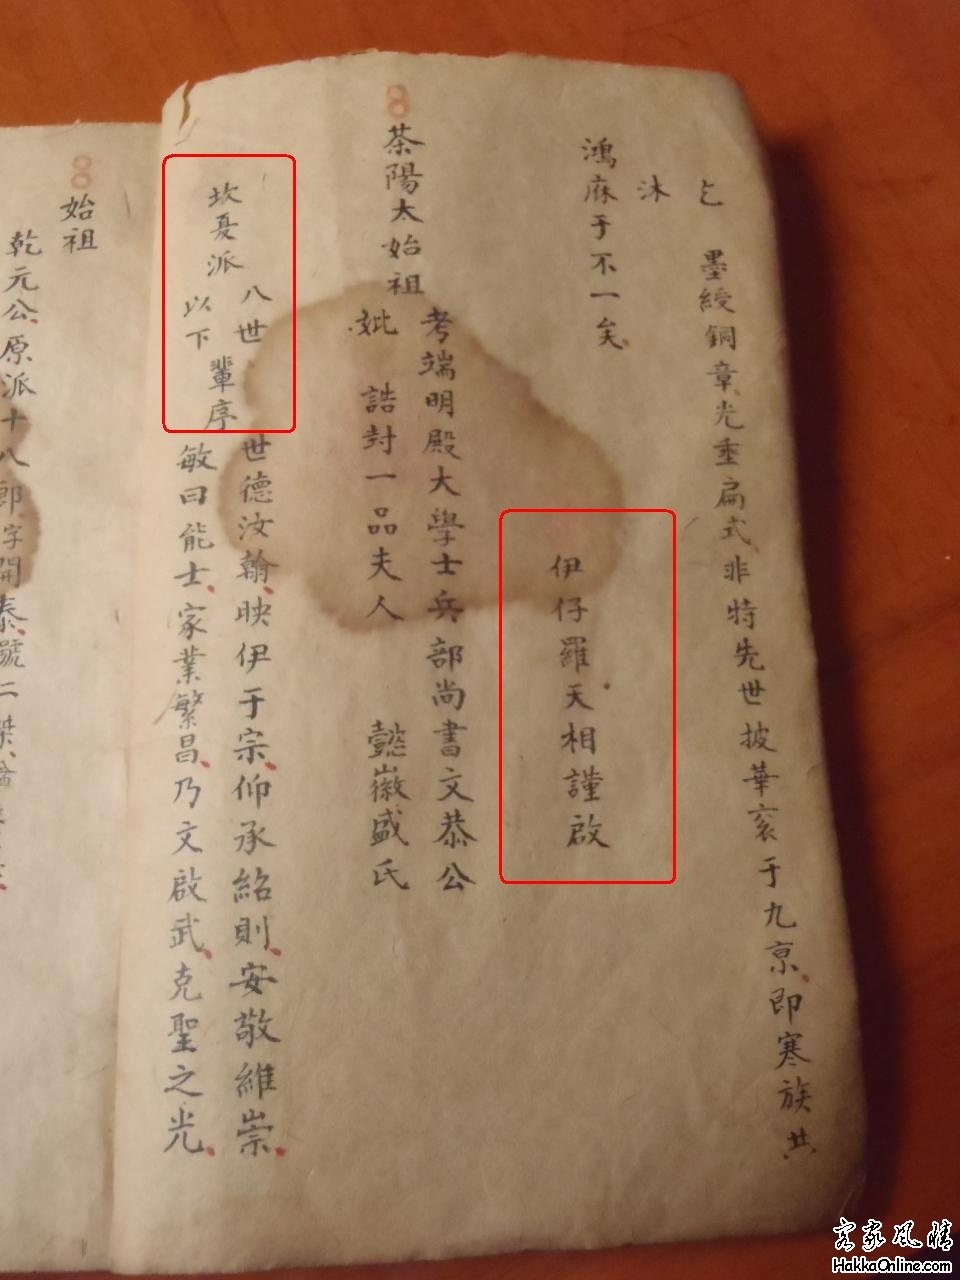 乞
墨綬銅章光垂扁式非特先世披華袞于九京即寒族共
沐
鴻庥于不一矣
伊仔羅天相謹啟
茶陽太始祖
考端明殿大學士兵部尚書文恭公
妣 誥封一品夫人 懿徽盛氏
坎夏派
八世
以下
輩序
世德汝翰映伊于宗仰承紹則安敬維崇
敏曰能士家業繁昌乃文啟武克聖之光
始祖
乾元公原派十八郎字開泰號二
客家風情
HakkaOnline.com